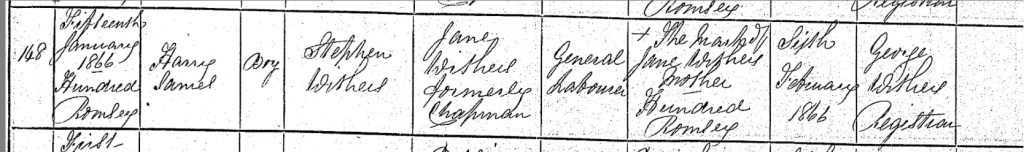 Romsey
Registrar
148
Fifteenth
January
1866
Hundred
Romsey
Harry
James
Boy
Stephen
Withers
Jane
Withers
formerly
Chapman
General
Labourer
+ The mark of
Jane Withers
Mother
Hundred
Romsey
Sixth
February
1866
George
Withers
Registrar
First